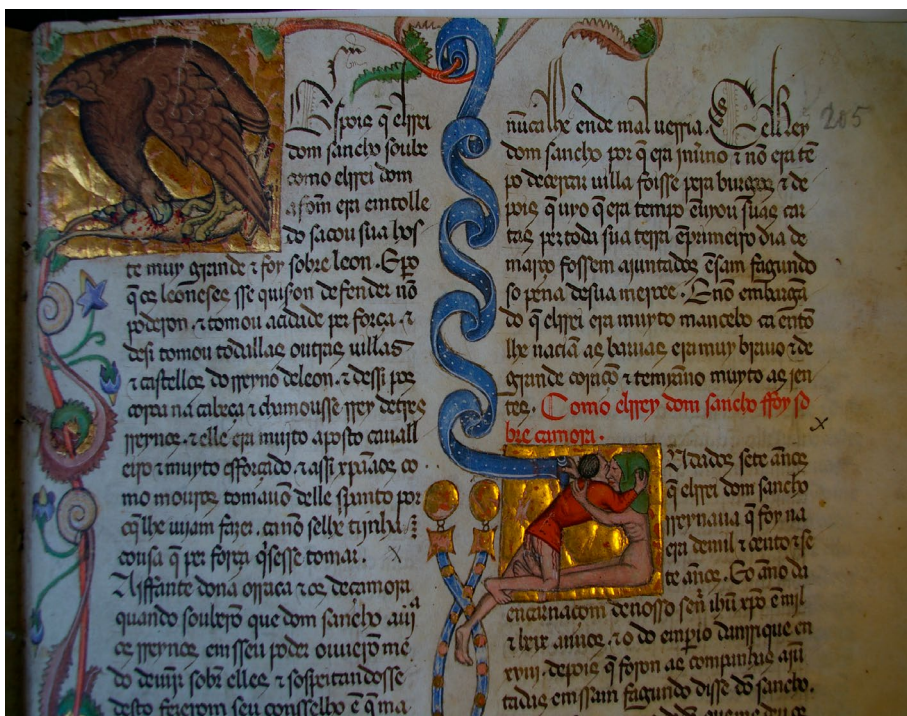 Espois q̃ elrrei
dom sancho soube
como elrrei dom
afom era em tolle
do sacou sua hos
te muy grande ⁊ foy sobre leon. Epo
q̃ os leoneses sse quison defender nõ
poderon. ⁊ tomou acidade per força. ⁊
desi tomou todallas outras uillas
⁊ castellos do rreyno de leon. ⁊ dessi pos
coroa na cabeça ⁊ chamousse rrey detres
rreynos. ⁊ elle era muito aposto cauall
eiro ⁊ muyto efforçado. ⁊ assi xpãaos co
mo mouros tomauõ delle spanto por
oq̃ lhe uiam fazer. ca nõ selhe tijnha
cousa q̃ per força q̃sesse tomar.
A iffante dona orraca ⁊ os deçamora
quando souberõ que dom sancho auia
os rreynos em sseu poder ouuerõ me
do de uijr sobr elles. ⁊ sospeitandosse
desto fezerom seu consselho ẽ q̃ ma
nũca lhe ende mal uerria. Eelrrey
dom sancho por q̃ era jnuerno ⁊ nõ era tẽ
po decercar uilla foisse pera burgos ⁊ de
pois q̃ uyo q̃ era tempo ẽuyou suas car
tas per toda sua terra q̃ primeiro dia de
março fossem aiuntados ẽ sam fagundo
so pena desua merçee. E nõ embargã
do q̃ elrrei era muyto mancebo ca entõ
lhe naciã as baruas era muy brauo ⁊ de
grande coraçõ ⁊ temiano muyto as jen
tes. Como elrrey dom sancho ffoy so
bre çamora.
Andados sete años
q̃ elrrei dom sancho
rreynaua q̃ foy na
era de mil ⁊ cento ⁊ se
te años. Eo ano da
encarnaçom de nosso señ ihũ xpõ ẽ mil
⁊ lxix annos. ⁊ o do empio danrrique en
xviii. depois q̃ foron as companhas aiũ
tadas em ssam fagundo disse dõ sancho.
205